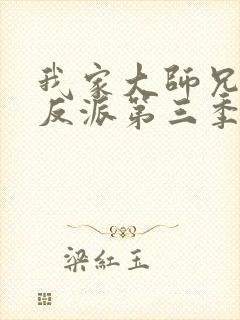 我家大師兄
反派第三季
梁紅玉